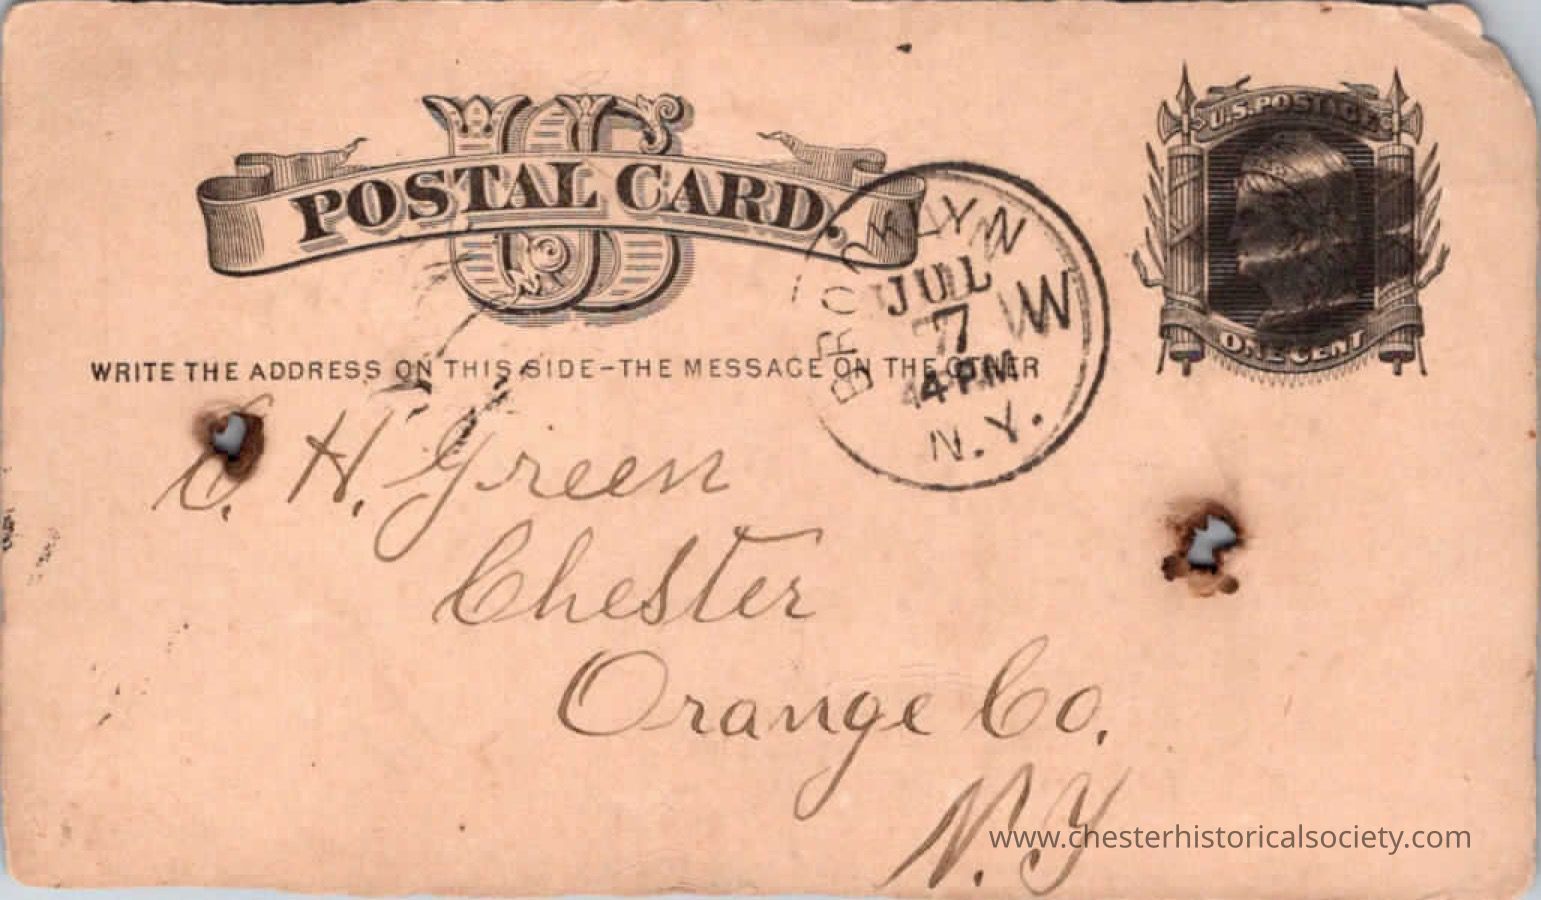 US
POSTAL CARD.
U.S. POSTAGE
ONE CENT
BROOKLYN
JUL
7
4 PM
W
N.Y.
WRITE THE ADDRESS ON THIS SIDE-THE MESSAGE ON THE OTHER
H. Green
Chester
Orange Co.
N.Y
www.chesterhistoricalsociety.com